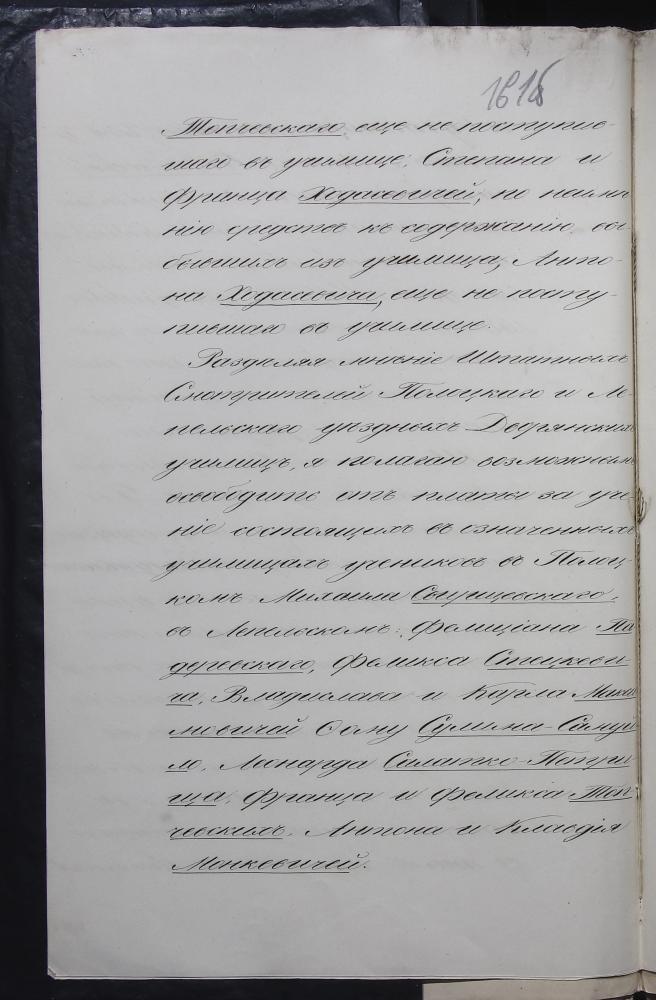 161б
Топчевскаго еще не поступив-
шаго въ училище; Степана и
Франца Ходасевичей, по неимѣ-
нію средствъ къ содержанію вы-
бывшихъ изъ училища, Анто-
на Ходасевича, еще не посту-
пившаго въ училище.
Раздѣляя мнѣніе Штатныхъ
Смотрителей Полоцкаго и Ле-
пельскаго уѣздныхъ Дворянскихъ
училищъ, я полагаю возможнымъ
освободить отъ платы за уче-
ніе состоящихъ въ означенныхъ
училищахъ учениковъ въ Полоц-
комъ Михаила
въ Лепельскомъ: Фелиціана По
Феликса Стецкеви-
ча, Владислава и Карла
мовичей Ѳому Сулима-Самуй
ло, Леонарда Салатко-Петри
ща, Франца и Феликса Топ
чевскихъ, Антона и Клавдія
Монкевичей.